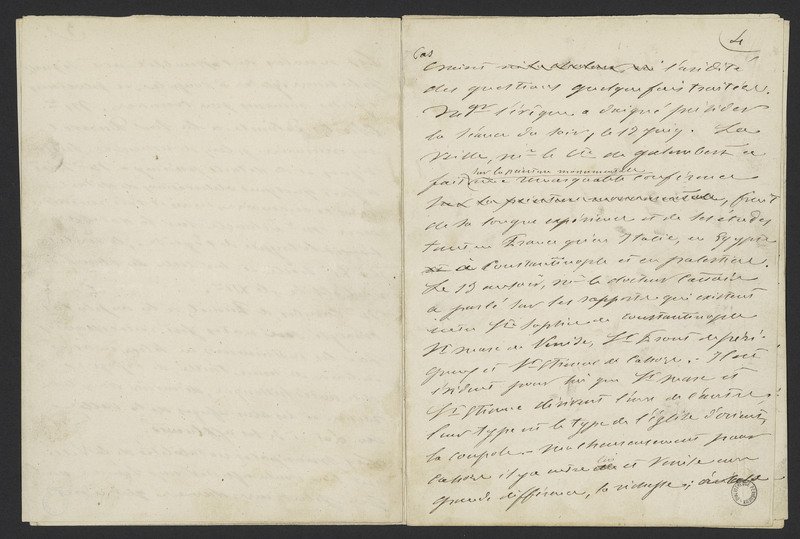 4
Cas
l'aridité
des questions quelquefois traitées.
Mgr l'évêque a daigné présider
la séance du soir, le 12 juin. La
veille, Mr le Cte de galembert a
sur la peinture monumentale
fait une remarquable conférence
sur la peinture monumentale, fruit
de sa longue expérience et de ses études
tant en France qu'en Italie, en Egypte
à Constantinople et en palestine.
Le 13 au soir, Mr le docteur Cattois
a parlé sur les rapports qui existent
entre Ste Sophie de Constantinople
St marc de Venise, St Front de péri-
gueux et St Etienne de Cahors. Il est
évident pour lui que St marc et
St Etienne dérivent l'un de l'autre :
leur type est le type de l'église d'orient,
la coupole. Malheureusement pour
Cahors il y a entre lui et Venise une
grande différence, la richesse ;